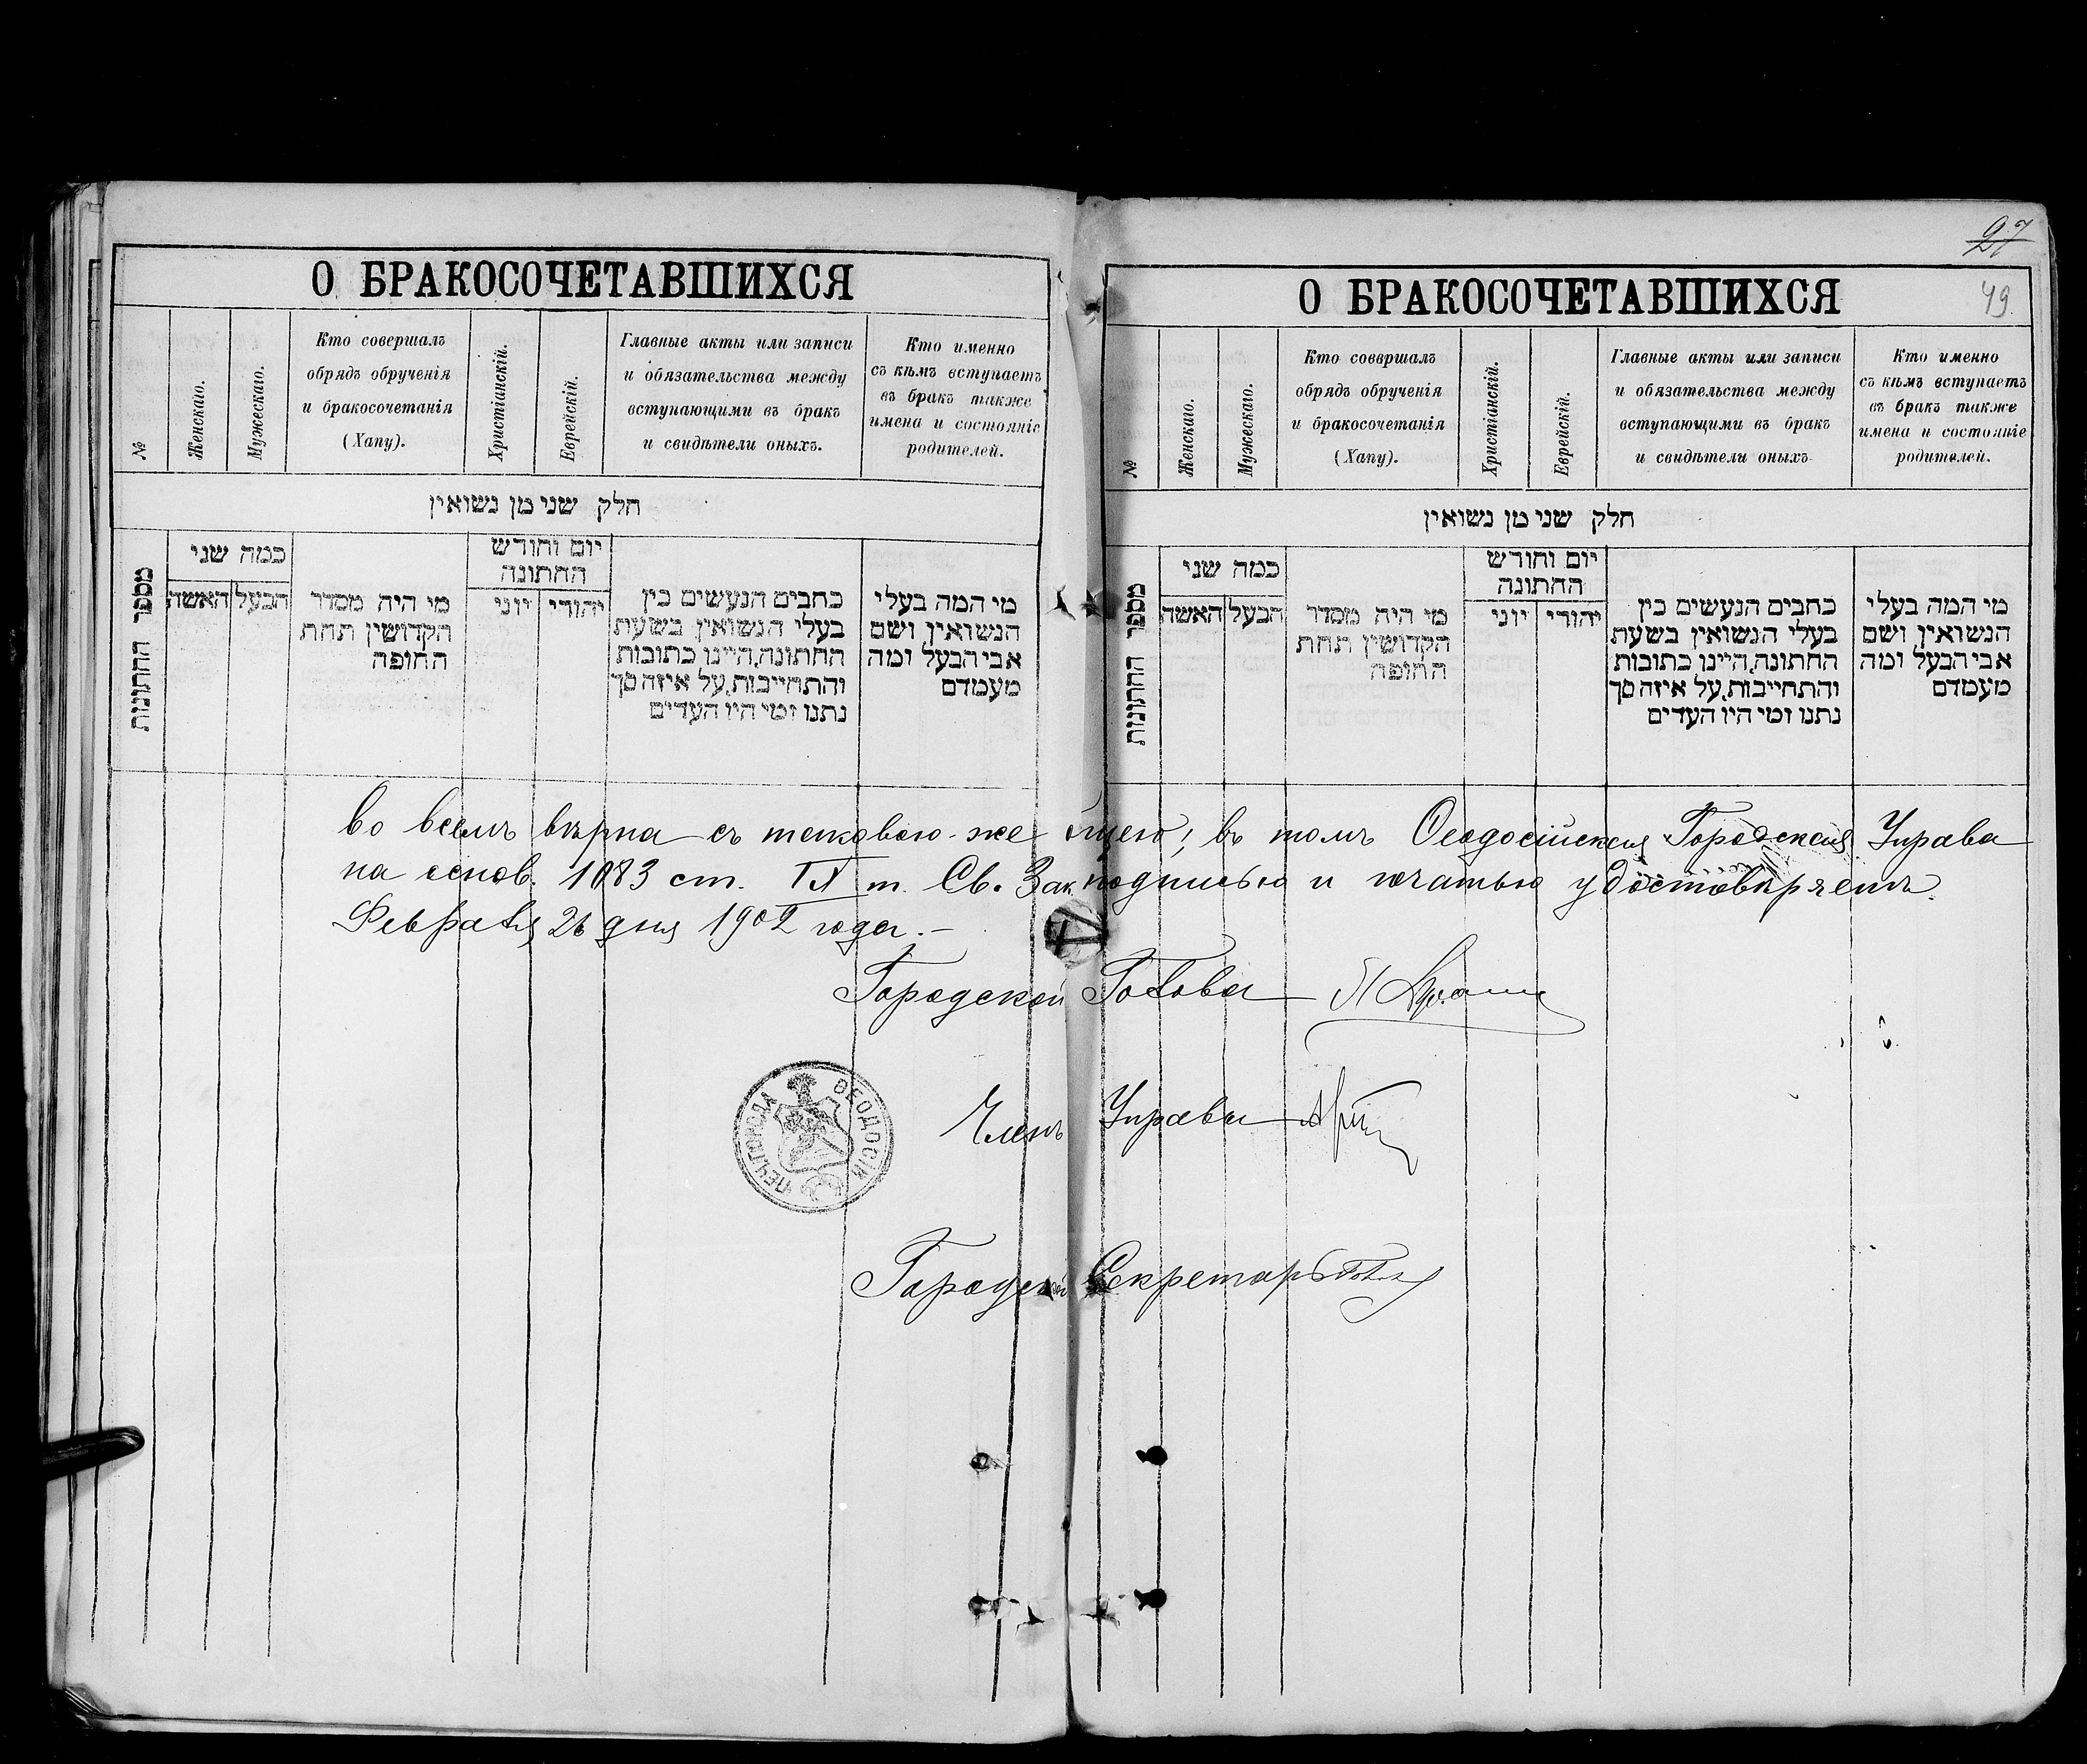 О БРАКОСОЧЕТАВШИХСЯ
№
Женскаго.
Мужескаго.
Кто совершалъ
обрядъ обрученія
и бракосочетанія
(Хапу).
Христіанскій.
Еврейскій.
Главные акты или записи
и обязательства между
вступающими въ бракъ
и свидѣтели оныхъ.
Кто именно
съ кѣмъ вступаетъ
въ бракъ также
имена и состояніе
родителей.
חלק שני מן נשואין
מספר החתונות
כמה שני
האשה
הבעל
מי היה מסדר
הקדושין תחת
החופה
יום וחודש
החתונה
יוני
יהודי
כתבים הנעשים בין
בעלי הנשואין בשעת
החתונה,היינו כתובות
והתחייבות,על איזה סך
נתנו ומי היו העדים
מי המה בעלי
הנשואין ושם
אבי הבעל ומה
מעמדם
27
О БРАКОСОЧЕТАВШИХСЯ
49
№
Женскаго.
Мужескаго.
Кто совершалъ
обрядъ обрученія
и бракосочетанія
(Хапу).
Христіанскій.
Еврейскій.
Главные акты или записи
и обязательства между
вступающими въ бракъ
и свидѣтели оныхъ
Кто именно
съ кѣмъ вступаетъ
въ бракъ также
имена и состояніе
родителей.
חלק שני מן נשואין
מספר החתונות
כמה שני
האשה
הבעל
מי היה מסדר
הקדושין תחת
החופה
יום וחודש
החתונה
יוני
יהודי
כתבים הנעשים בין
בעלי הנשואין בשעת
החתונה,היינו כתובות
והתחייבות,על איזה סך
נתנו ומי היו העדים
מי המה בעלי
הנשואין ושם
אבי הבעל ומה
מעמדם
во всемъ вѣрна съ таковою-же въ томъ Ѳеодосійская Городская Управа
на основ. 1083 ст. IX т. Св. Зак. подписью и печатью удостовѣряетъ.
Февраля 26 дня 1902 года.–
Городской Голова
Членъ Управы
ПЕЧ. ГОРОДА ѲЕОДОСІИ
Городской Секретарь